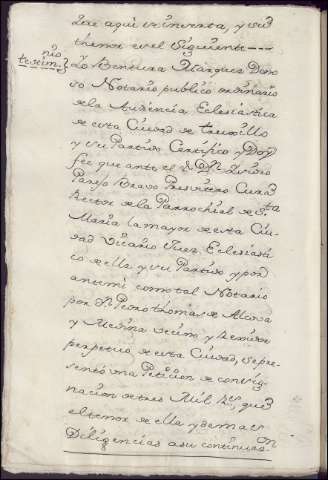 que aqui se inserta, y su
thenor es el siguiente
testim.nio
Yo Bentura Marques Dono
so Notario publico ordinario
de la Audiencia Eclesiastica
de esta Ciudad de truxillo
y su Partido Certifico y Doy
fee que ante el S.r D.n
Parejo Bravo Presvitero Cura
Rector de la Parrochial de S.ta
Maria la mayor de esta Ciu
dad Vicario Juez Eclesiasti
co de ella y su Partido y por
ante mi como tal Notario
por D.n Pedro thomas de
y Medina vecino y Rexidor
perpetuo de esta Ciudad, se pre
sentó una Peticion de consig
nacion de tres Mil r.s, que
el tenor de ella y demas
Diligencias a su continuaz.on